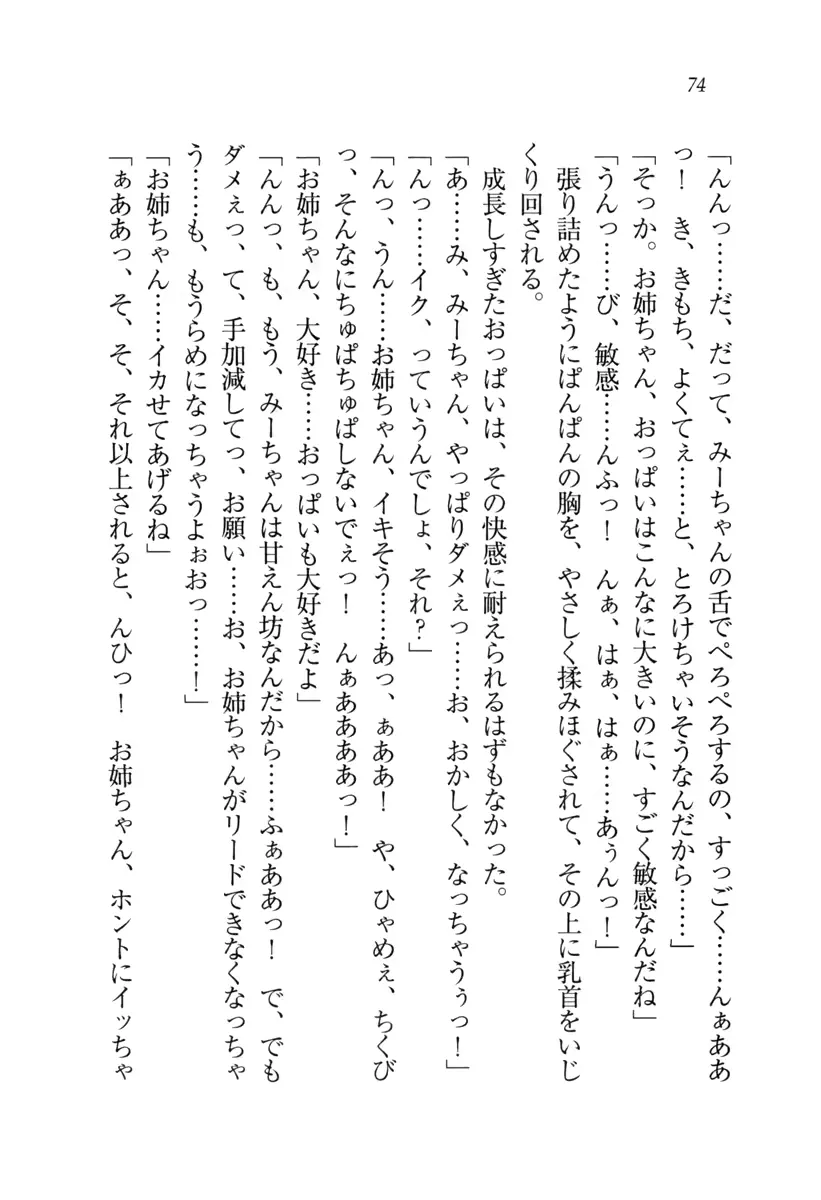 74
「んんっ……だ、だって、みーちゃんの舌でぺろぺろするの、すっごく……んぁああ
っ！　き、きもち、よくてぇ……と、とろけちゃいそうなんだから……」
「そっか。お姉ちゃん、おっぱいはこんなに大きいのに、すごく敏感なんだね」
「うんっ……び、敏感……んふっ！　んぁ、はぁ、はぁ……あぅんっ！」
　張り詰めたようにぱんぱんの胸を、やさしく揉みほぐされて、その上に乳首をいじ
くり回される。
　成長しすぎたおっぱいは、その快感に耐えられるはずもなかった。
「あ……み、みーちゃん、やっぱりダメぇっ……お、おかしく、なっちゃうぅっ！」
「んっ……イク、っていうんでしょ、それ？」
「んっ、うん……お姉ちゃん、イキそう……あっ、ぁああ！　や、ひゃめぇ、ちくび
っ、そんなにちゅぱちゅぱしないでぇっ！　んぁああああっ！」
「お姉ちゃん、大好き……おっぱいも大好きだよ」
「んんっ、も、もう、みーちゃんは甘えん坊なんだから……ふぁああっ！　で、でも
ダメぇっ、て、手加減してっ、お願い……お、お姉ちゃんがリードできなくなっちゃ
う……も、もうらめになっちゃうよぉおっ……！」
「お姉ちゃん……イカせてあげるね」
「ぁああっ、そ、そ、それ以上されると、んひっ！　お姉ちゃん、ホントにイッちゃ